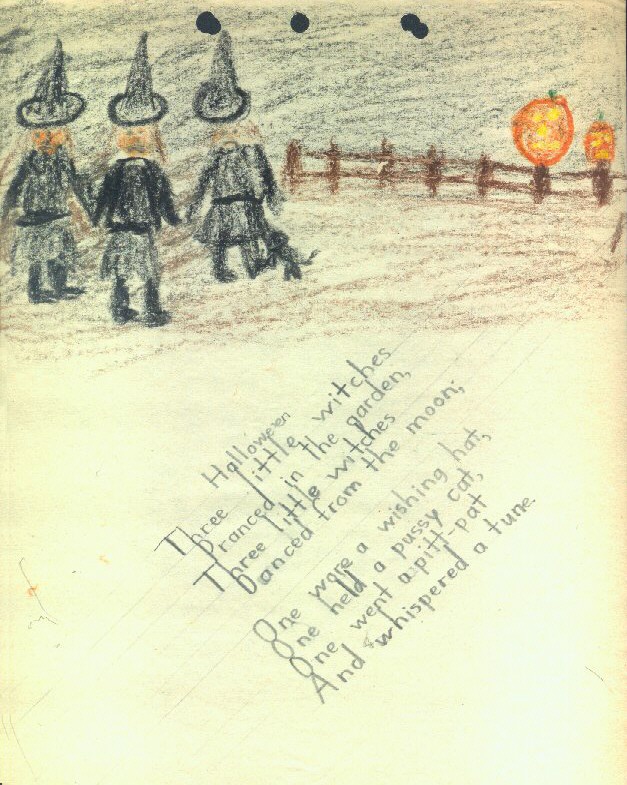 Halloween
Three little witches
Pranced in the garden,
Three little witches
Danced from the moon;
One wore a wishing hat,
One held a pussy cat,
One went a pitt-pat
And whispered a tune.